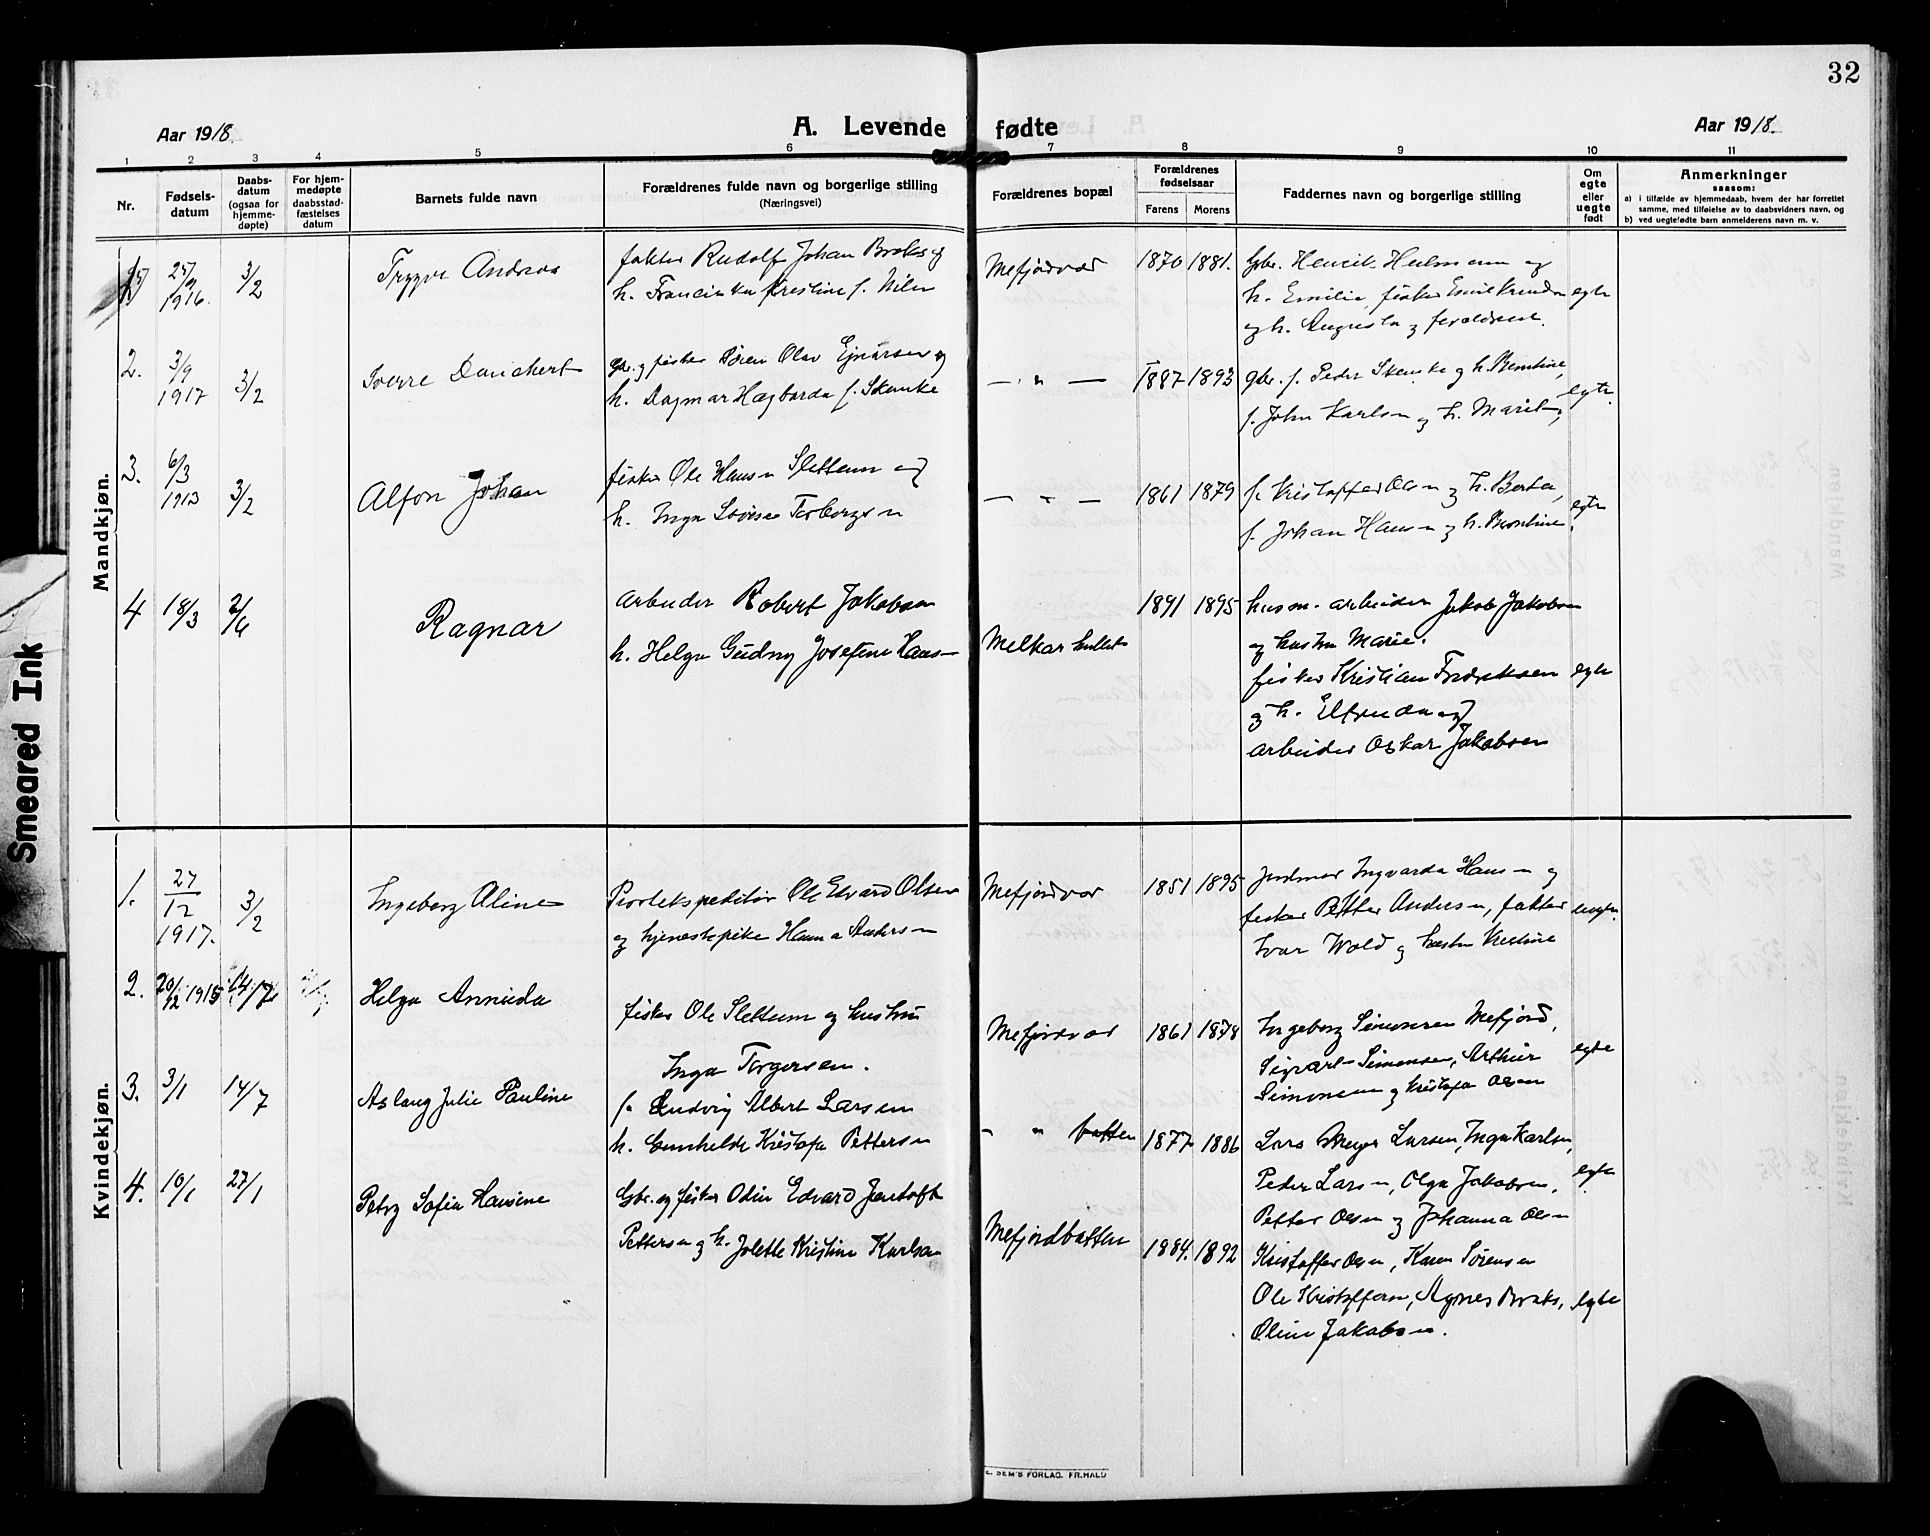 32
Aar 1918.
A. Levende fødte
Aar 1918.
1 2 3 4 5 6 7 8 9 10 11
Nr.
Fødsels-
datum
Daabs-
datum
(ogsaa for
hjemme-
døpte)
For hjem-
medøpte
daabsstad-
fæstelses
datum
Barnets fulde navn
Forældrenes fulde navn og borgerlige stilling
(Næringsvei)
Forældrenes bopæl
Forældrenes
fødselsaar
Farens
Morens
Faddernes navn og borgerlige stilling
Om
egte
eller
uegte
født
Anmerkninger
saasom:
a) i tilfælde av hjemmedaab, hvem der har forrettet
samme, med tilføielse av to daabsvidners navn, og
b) ved uegtefødte barn anmelderens navn m. v.
Mandkjøn.
1916. 3/2
Trygve Andreas
faktor Rudolf Johan Broks og
h. Franciska Kristine f. Nilsn
Mefjordvær
1870 1881.
Gbr. Henrik Heilmann og
h. Emilie, fisker Emil
og h. Augusta og forældrene.
egte
2. 3/9
1917 3/2
Sverre Danchert
gbr. og fisker Sören Olav Ejnarsen og
h. Dagmar Hagbarda f. Skanke
— " —
1887 1893
gbr. f. Peder Skanke og h. Berntine,
f. John Karlsn og h. Marit,
egte.
3. 6/3
1913 3/2
Alfon Johan
fisker Ole Hansn Slettum og
h. Inga Lovise Torbergsn
— " —
1861 1879
f. Kristoffer Olsn og h. Berta,
f. Johan Hansn og h. Berntine.
egte
4 18/3 2/6
Ragnar
Arbeider Robert Jakobsen
h. Helga Gudny Josefine Hans—
Melkarhullet
1891 1895
husm. arbeider Jakob Jakobsn
og hustru Marie.
fisker Kristian Fredriksen
og h. Elfrida og
arbeider Oskar Jakobsen
egte
Kvindekjøn.
1. 27/12
1917. 3/2
Ingeborg Aline
Postekspeditör Ole Edvard Olsen
og tjenestepike Hanna Andersn
Mefjordvær
1851 1895
Jordmor Ingvarda Hansn og
fisker Petter Andersn, faktor
Ivar Wold og hustru Kristine
uegte.
2. 20/12 1915 14/7
Helga Annida
fisker Ole Slettum og hustru
Inga Torgersen.
Mefjordvær
1861 1878
Ingeborg Simonsen Mefjord,
Sigvart Simonsen, Arthur
Simonsen og Kristofa Olsen
egte
3. 3/1 14/7
Aslaug Julie Pauline
f. Ludvig Albert Larsen
h. Gunhilde Kristofa Pettersn
- " botten
1877 1886
Lars Meyer Larsen, Inga Karlsn,
Peder Larsn, Olga Jakobsen,
Petter Olsn og Johanna Olsn
egte
4. 10/1 27/1
Petry Sofie Hansine
Gbr. og fisker Odin Edvard Jentoft
Pettersn og h. Jolette Kristine Karlsn
Mefjordbotten
1884. 1892
Kristoffer Olsn, Karen Sörensen
Ole Kristoffersn, Agnes Broks,
Oline Jakobsn.
egte
SEM'S FORLAG. FR.HALD
Smeared Ink